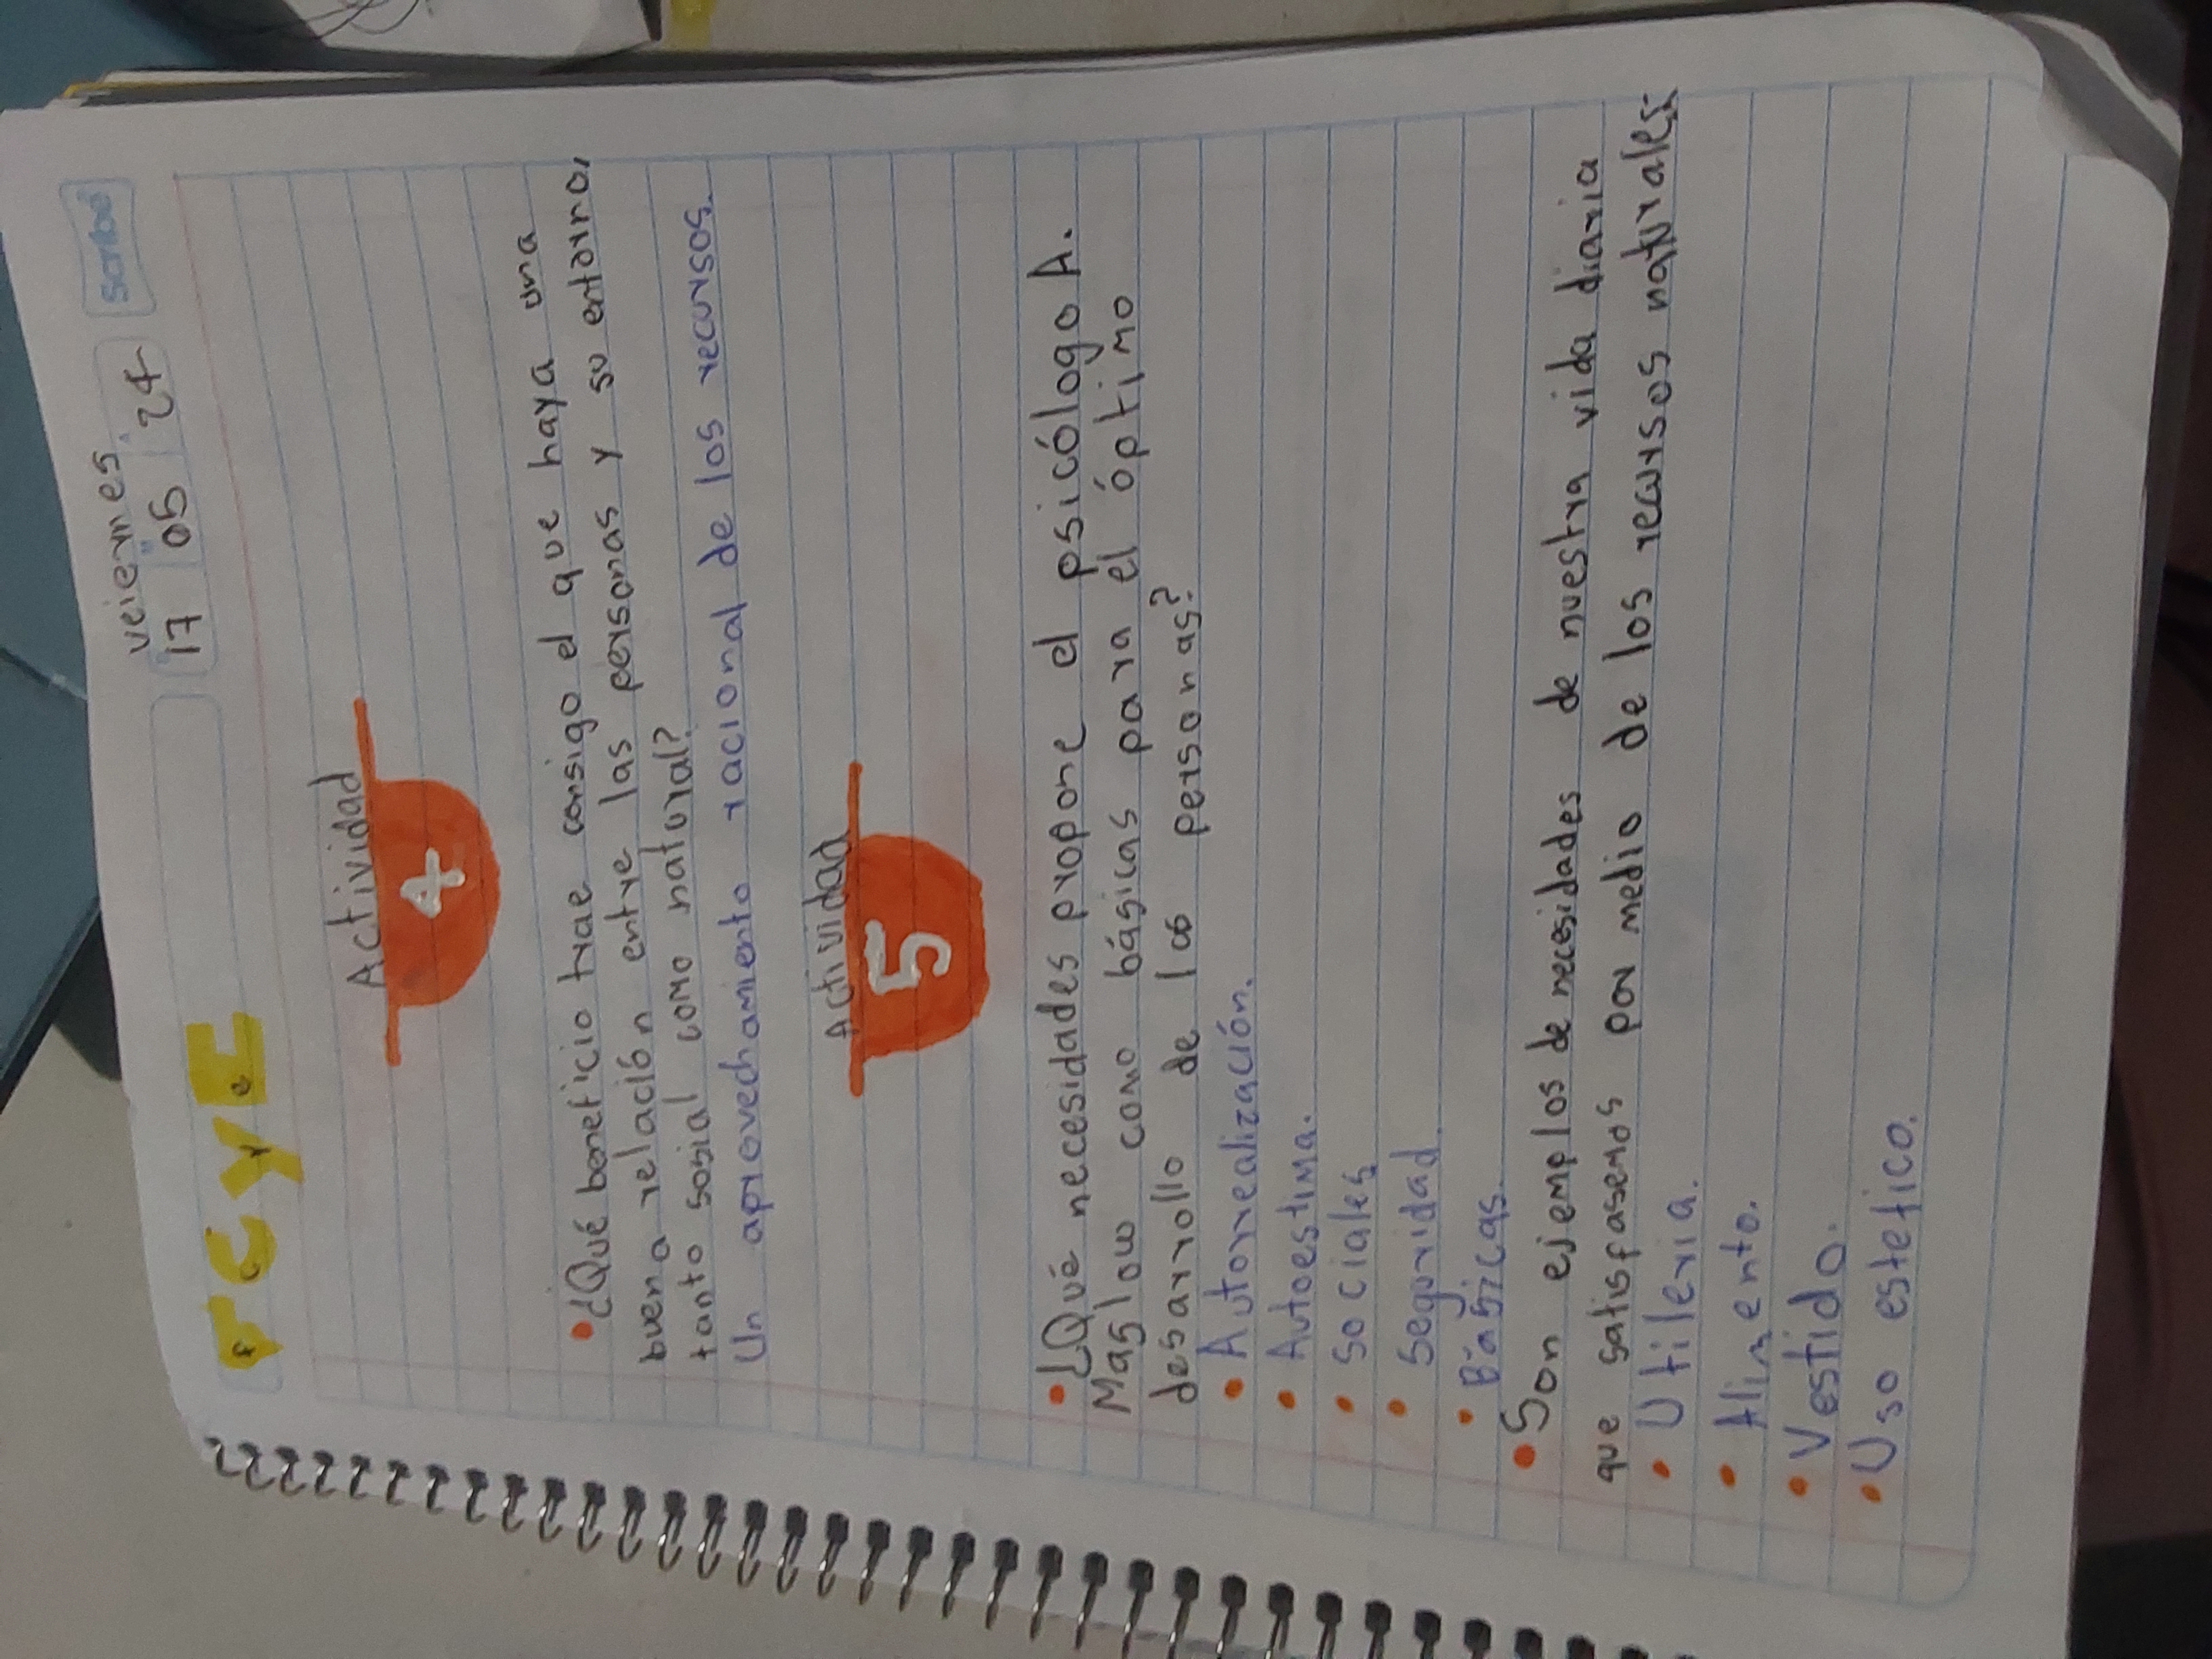 veiernes
17 05 24
scribe
FCYE
Actividad
4
• ¿Qué beneficio trae consigo el que haya una
buena relación entre las personas y su entorno,
tanto sosial como natural?
Un aprovechamiento racional de los recursos.
Actividad
5
• ¿Qué necesidades propone el psicólogo A.
Maslow como básicas para el óptimo
desarrollo de las personas?
• Autorrealización.
• Autoestima.
• Sociales
• Seguridad.
• Básicas.
• Son ejemplos de necesidades de nuestra vida diaria
que satisfasemos por medio de los recursos naturales:
• Utileria.
• Alimento.
• Vestido.
• Uso estetico.